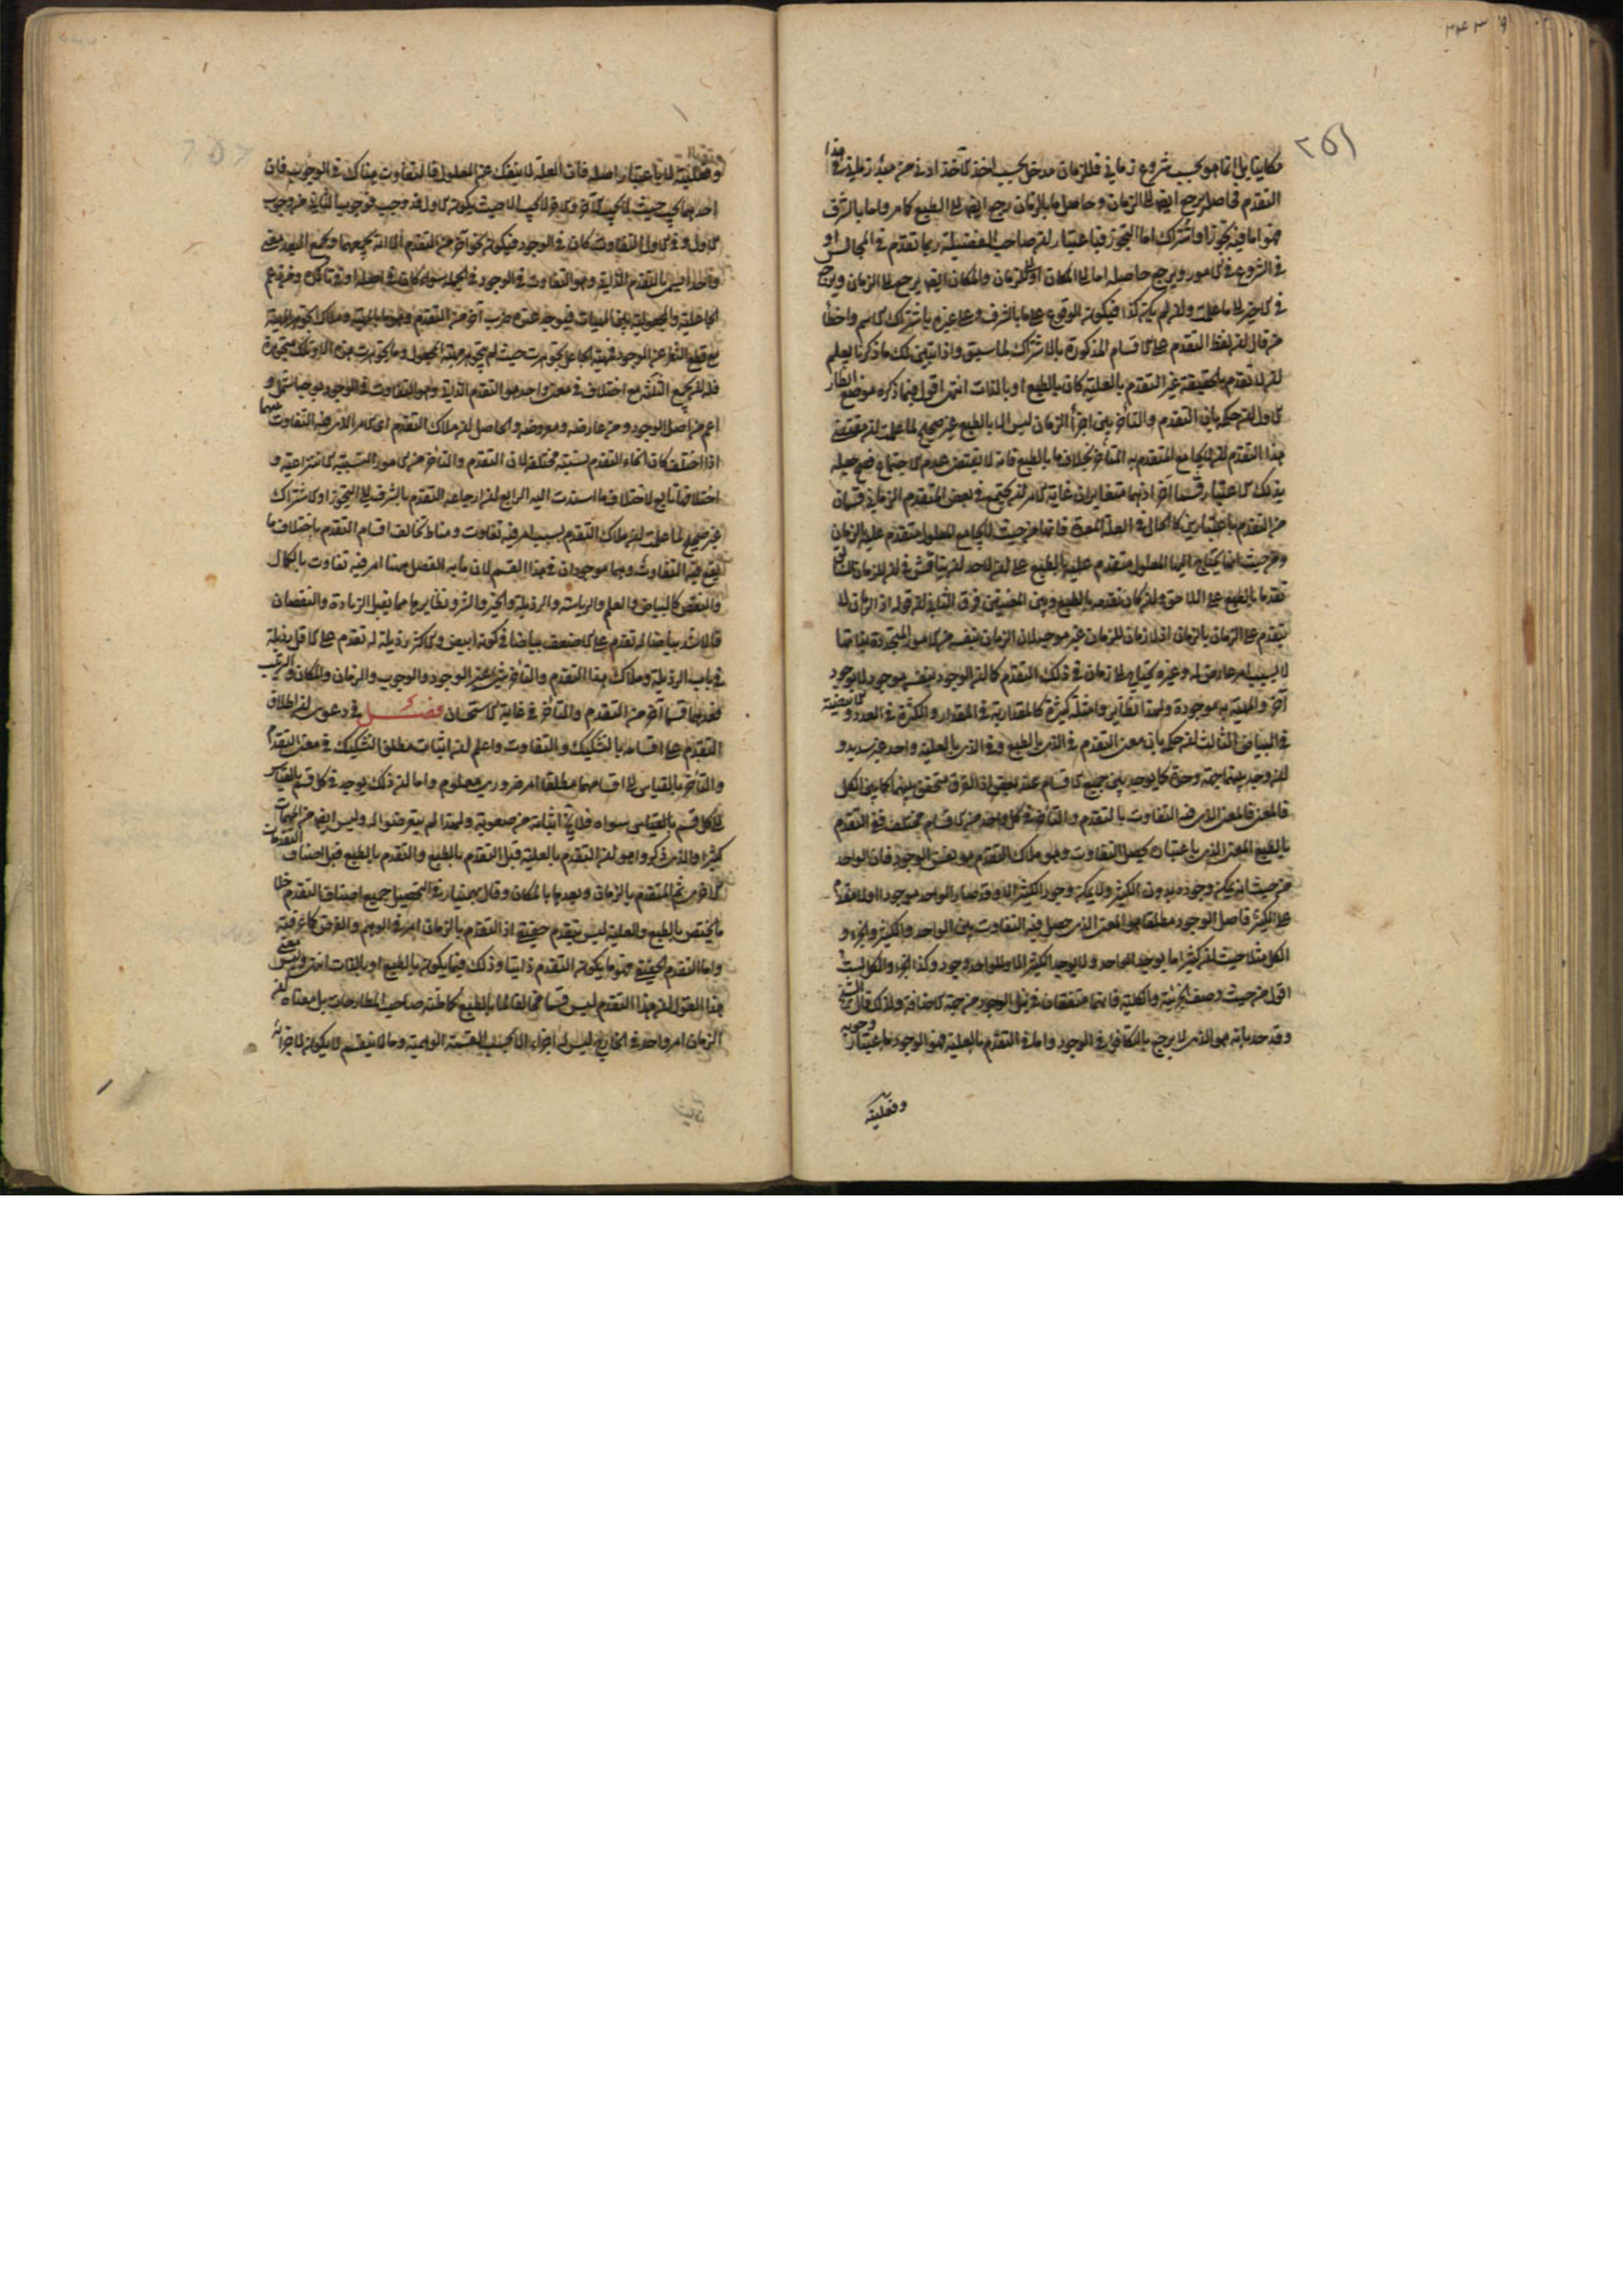 ٢٥١
مكانيا بل انما هو بحسب شروع زماني فللزمان مدخل بحسب اخذ الآخذ اذ في حق مبدأ زماني هذا
التقدم فحاصله يرجع ايضا الى الزمان وحاصل ما بالزمان يرجع ايضا الى الطبع كما مر واما بالشرف
فهو اما فيه تجوز او اشتراك اما التجوز فباعتبار ان صاحب الفضيلة ربما تقدم في المجالس او
في الشروع في الامور ويرجع حاصله اما الى المكان او الى الزمان والمكان ايضا يرجع الى الزمان ويرجع
في الاخير الى ما علمت وان لم يكن كذا فيكون الوقوع على ما بالشرف وعلى غيره باشتراك الاسم واخطأ
من قال ان لفظ التقدم على الاقسام المذكورة بالاشتراك لما سبق واذا تبين لك ما ذكرنا يعلم
ان لا تقدم بالحقيقة غير التقدم بالعلية كان بالطبع او بالذات انتهى اقول فيما ذكره موضع انظار
الاول ان حكمه بان التقدم والتأخر بين اجزاء الزمان ليس الا بالطبع غير صحيح لما علمت ان مقتضى
هذا التقدم ان لا يجامع المتقدم به المتأخر بخلاف ما بالطبع فانه لا يقتضي عدم الاجتماع فصح جعله
بذلك الاعتبار قسما آخر اذ هما متغايران غاية الامر ان يجتمع في بعض المتقدم الزماني قسمان
من التقدم باعتبارين كالحال في العلة المعدة فانها من حيث لا يجامع المعلول متقدم عليه بالزمان
ومن حيث انها يحتاج اليها المعلول متقدم عليه بالطبع على ان لاحد ان يناقش في ان للزمان السابق
تقدما بالطبع على اللاحق وان كان تقدمه بالطبع وبين المعنيين فرق الثاني ان قوله اذ الزمان لا
يتقدم على الزمان بالزمان اذ لا زمان للزمان غير موجه لان الزمان بنفسه من الامور المتجددة بذاتها
لا بسبب امر عارض له وغيره يحتاج الى زمان في ذلك التقدم كما ان الوجود بنفسه موجود لا بوجود
آخر والمهية به موجودة ولهذا نظاير وامثلة كثيرة كالمقدارية في المقدار والكثرة في العدد والابيضية
في البياض الثالث ان حكمه بان معنى التقدم في الذي بالطبع وفي الذي بالعلية واحد غير سديد و
ان وجد بينهما جهة وحدة كما يوجد بين جميع الاقسام عند بعض اذ الفرق متحقق بينهما كما بين الكل
في المعنى فالمعنى الذي فيه التفاوت بالتقدم والتأخر في كل واحد من الاقسام مختلف ففي التقدم
بالطبع المعنى الذي باعتباره يحصل التفاوت وهو ملاك التقدم هو نفس الوجود فان الواحد
من حيث انه يمكن وجوده بدون الكثير ولا يمكن وجود الكثير الا وقد صار الواحد موجودا اولا مقدم
على الكثير فاصل الوجود مطلقا هو المعنى الذي حصل فيه التفاوت بين الواحد والكثير والجزء و
الكل مثلا حيث ان كثيرا ما يوجد الواحد ولا يوجد الكثير الا وللواحد وجود وكذا الجزء والكل لست
اقول من حيث وصف الجزئية والكلية فانهما متفقان في نيل الوجود من جهة الاضافة ولذلك قال الشيخ
وقد حد بانه هو الذي لا يرجع بالتكافؤ في الوجود واما في التقدم بالعلية فهو الوجود باعتبار وجوبه
وفعليته
وفعليته لا باعتبار اصله فان العلة لا ينفك عن المعلول فالتفاوت هناك في الوجوب فان
احدهما يجب حيث لا يجب الآخر والآخر لا يجب الا حيث يكون الاول قد وجب فوجوب الثاني من وجوب
الاول وفي الاول التفاوت كان في الوجود فيكون نحوا آخر من التقدم الا انه يجمعهما ويجمع البعد معنى
واحد يسمى بالتقدم الذاتي وهو التفاوت في الوجود في الجملة سواء كان في اصله او في تأكده ومن زعم
الجاعلية والمجعولية بين المهيات فيوجد عنده ضرب آخر من التقدم وهو ما بالمهية وملاك تجوهر المهية
مع قطع النظر عن الوجود فمهية الجاعل تجوهرت حيث لم يتجوهر مهية المجعول وما تجوهرت هذه الا وتلك متجوهرة
فللجميع الثلثة مع اختلاف في معنى واحد هو التقدم الذاتي وهو التفاوت في الوجود
اعم من اصل الوجود ومن عارضه ومعروضه والحاصل ان ملاك التقدم اي الامر الذي فيه التفاوت
اذا اختلف كان انحاء التقدم بسببه مختلفة لان التقدم والتأخر من الامور النسبية الانتزاعية و
اختلافها تابع لاختلاف ما اسندت اليه الرابع ان ارجاعه التقدم بالشرف الى التجوز او الاشتراك
غير صحيح لما علمت ان ملاك التقدم بسبب امر فيه تفاوت ومناط تخالف اقسام التقدم باختلاف ما
يقع فيه التفاوت وهما موجودان في هذا القسم لان ما به الفضل هيهنا امر فيه تفاوت بالكمال
والنقص كالبياض والعلم والرياسة والرذيلة والخير والشر ونظايرها مما يقبل الزيادة والنقصان
فالاشد بياضا له تقدم على الاضعف بياضا في كونه ابيض والاكثر رذيلة له تقدم على الاقل رذيلة
في باب الرذيلة وملاك هذا التقدم والتأخر شيء غير الوجود والوجوب والزمان والمكان والترتيب
فعدهما قسما آخر من التقدم والتأخر في غاية الاستحسان فصل في دعوى ان اطلاق
التقدم على اقسامه بالتشكيك والتفاوت واعلم ان اثبات مطلق التشكيك في معنى التقدم
والتأخر بالقياس الى اقسامهما مطلقا امر ضروري معلوم واما ان ذلك يوجد في كل قسم بالقياس
الى كل قسم بالقياس سواه فلا يخ اثباته من صعوبة ولهذا لم يتعرضوا له وليس ايضا من المهمات
كثيرا والذي ذكروا هو ان التقدم بالعلية قبل التقدم بالطبع والتقدم بالطبع قبل اصناف التقدمات
الاخرى ثم التقدم بالزمان وبعدهما بالمكان وقال بهمنيار في التحصيل جميع اصناف التقدم خلا
ما يختص بالطبع والعلية ليس بتقدم حقيقي اذ التقدم بالزمان امر في الوهم والفرض كما عرفته
واما التقدم الحقيقي فهو ما يكون التقدم ذاتيا وذلك فيما يكون بالطبع او بالذات انتهى وليس معنى
هذا القول ان هذا التقدم ليس قسما مخالفا لما بالطبع كما ظنه صاحب المطارحات بل معناه ان
الزمان امر واحد في الخارج ليس له اجزاء الا بحسب القسمة الوهمية وما لا ينقسم لا يكون لاجزائه